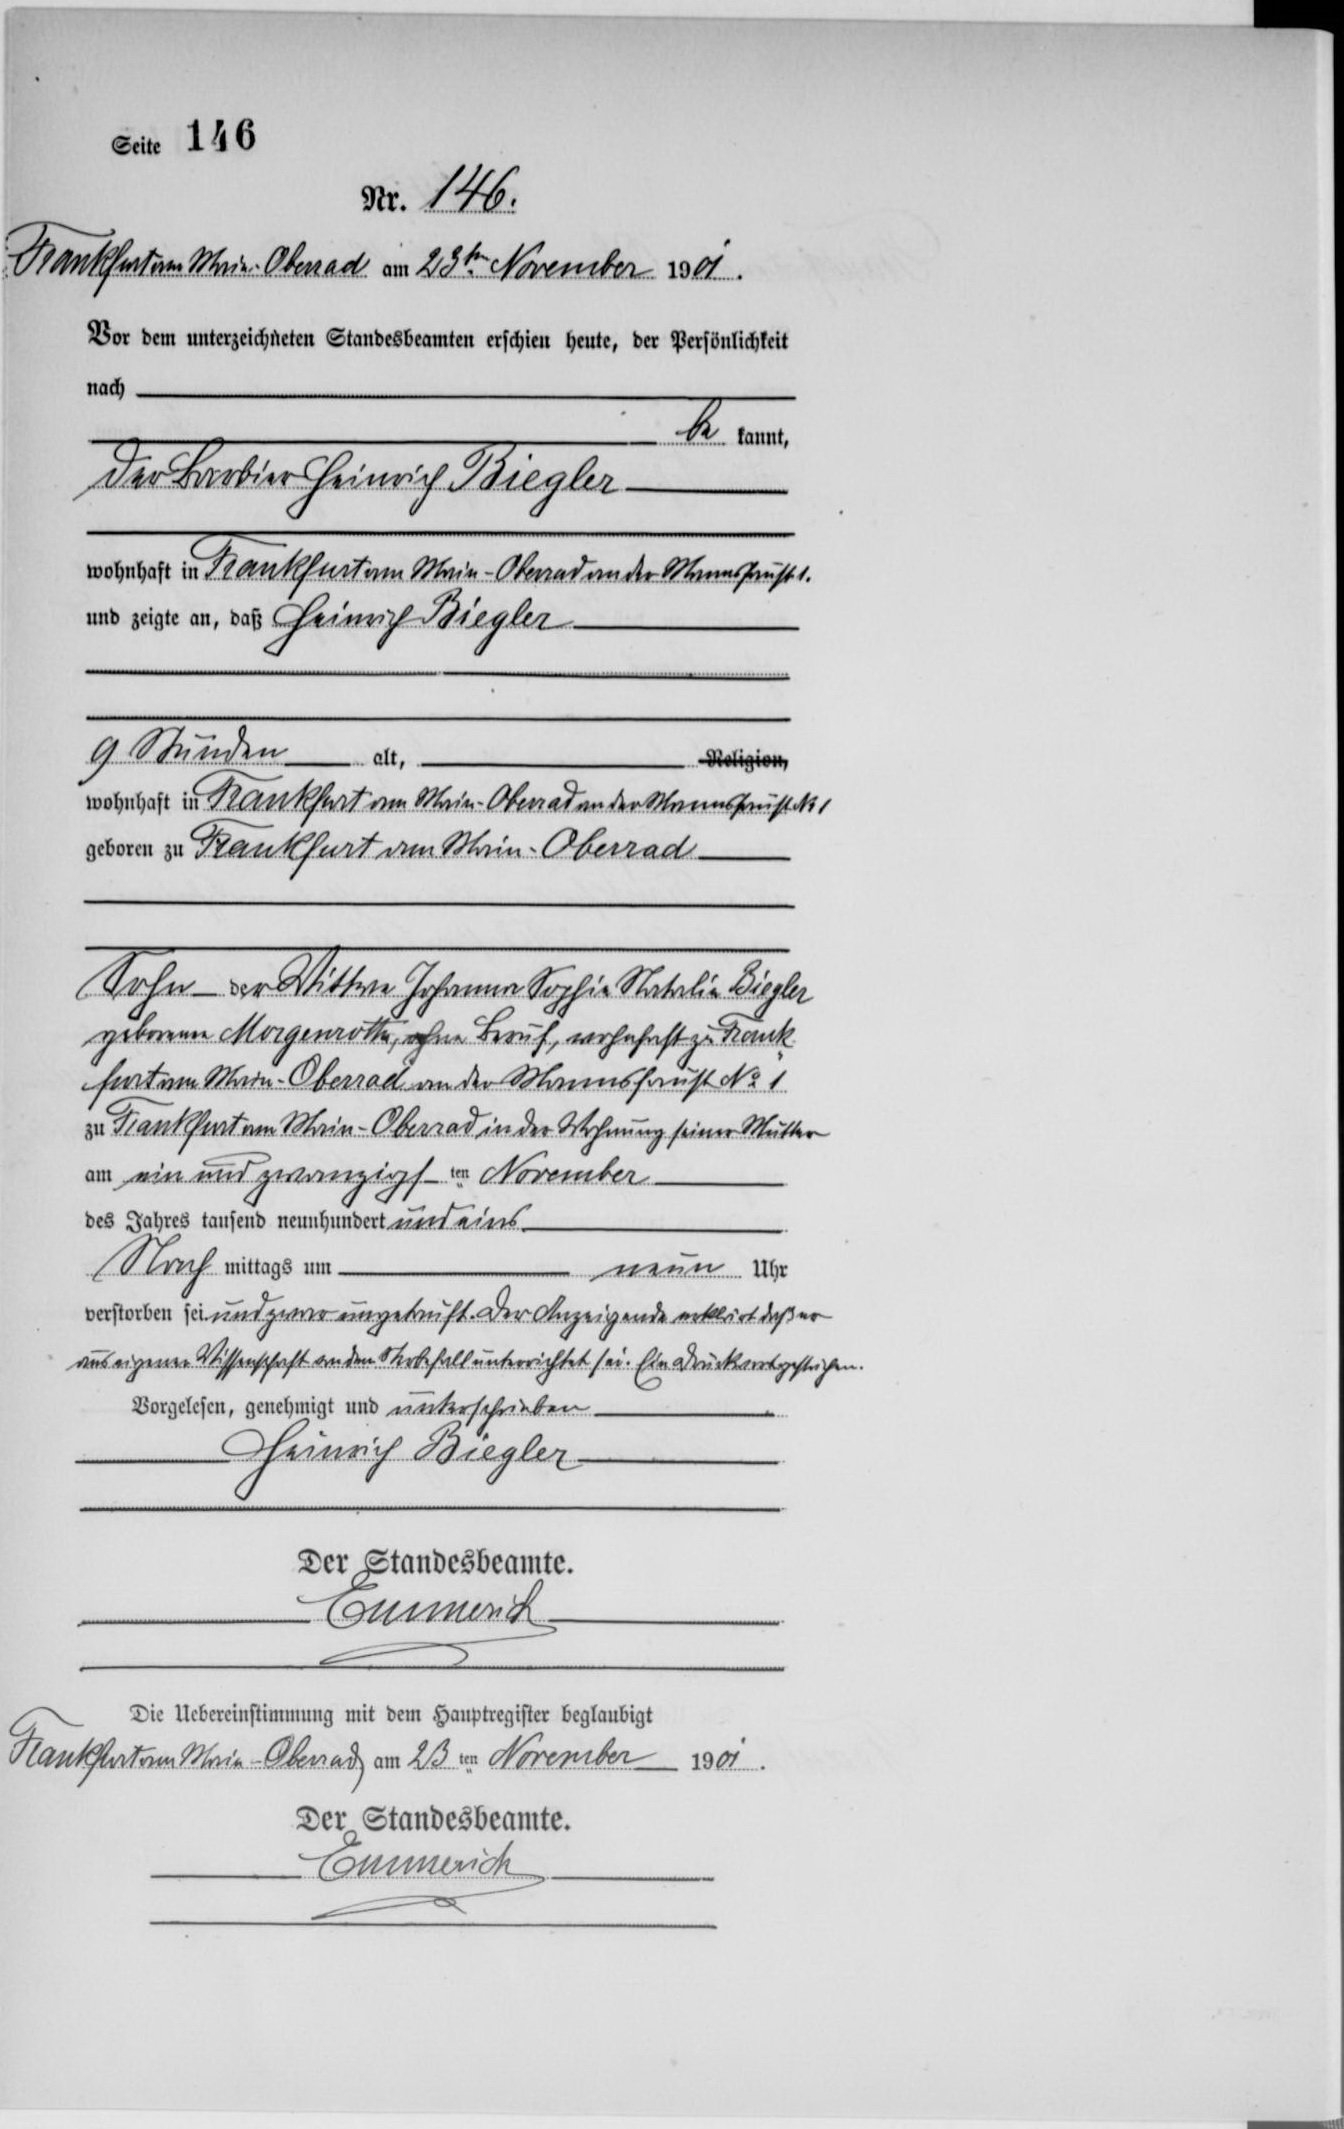 Seite 146
Nr. 146.
Frankfurt am Main-Oberrad am 23ten November 1901.
Vor dem unterzeichneten Standesbeamten erschien heute, der Persönlichkeit
nach
be kannt,
der Barbier Heinrich Biegler
wohnhaft in Frankfurt am Main-Oberrad an der Mannsfaust 1.
und zeigte an, daß Heinrich Biegler
9 Stunden alt, Religion,
wohnhaft in Frankfurt am Main-Oberrad an der Mannsfaust No 1
geboren zu Frankfurt am Main-Oberrad
Sohn der Wittwe Johanna Sophia Natalia Biegler
geborenen Morgenroth, ohne Beruf, wohnhaft zu Frank-
furt am Main-Oberrad an der Mannsfaust No 1
zu Frankfurt am Main-Oberrad in der Wohnung seiner Mutter
am ein und zwanzigsten November
des Jahres tausend neunhundert und eins
Nach mittags um neun Uhr
verstorben sei und zwar ungetauft. Der Anzeigende erklärt daß er
aus eigener Wissenschaft von dem Sterbefall unterrichtet sei. Ein Druckwort gestrichen.
Vorgelesen, genehmigt und unterschrieben
Heinrich Biegler
Der Standesbeamte.
Emmerich
Die Uebereinstimmung mit dem Hauptregister beglaubigt
Frankfurt am Main-Oberrad, am 23ten November 1901.
Der Standesbeamte.
Emmerich